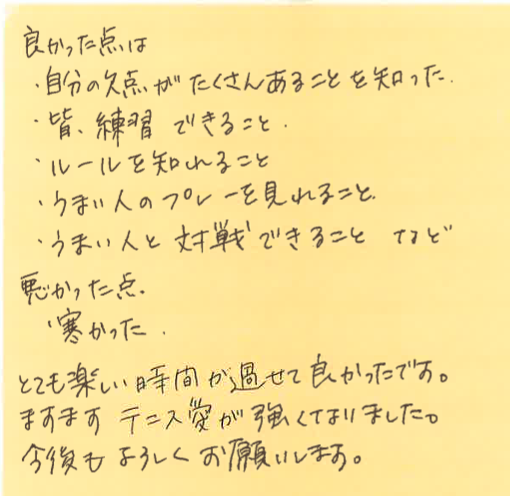 良かった点は
・自分の欠点がたくさんあることを知った.
・皆、練習できること.
・ルールを知れること
・うまい人のプレーを見れること.
・うまい人と対戦できること など
悪かった点.
・寒かった.
とても楽しい時間が過せて良かったです。
ますます テニス愛が強くなりました。
今後もよろしくお願いします。